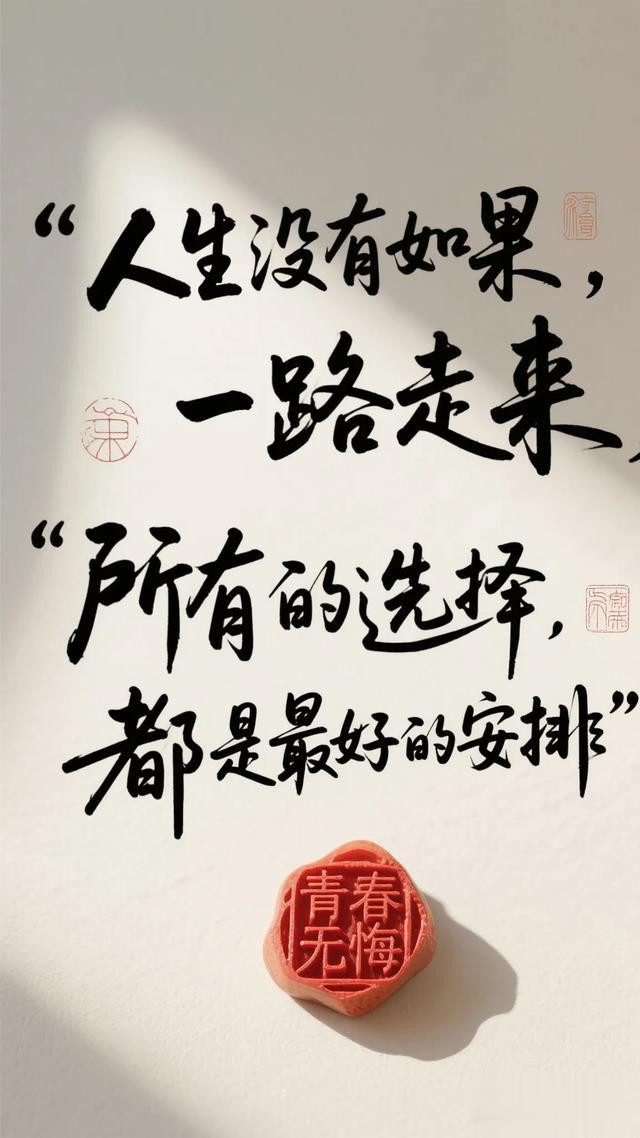 “人生没有如果，
一路走来，
“所有的选择，
都是最好的安排”
青春
无悔